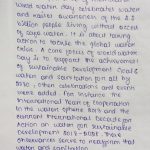 water day celebrates water
and raises awareness of the 2.2
billion people living without access
of safe water. It is about taking
action to tackle the global water
crisis. A core focus of world water
Day is to support the achievement
of sustainable development Goal 6
water and sanitation for all by
2030, other celebrations and events
were added. For instance, the
International Year of Cooperation
in the water sphere 2013, and the
current International Decade for
Action on water for sustainable
development 2018-2028. These
observances serve to reaffirm that
water and sanitation